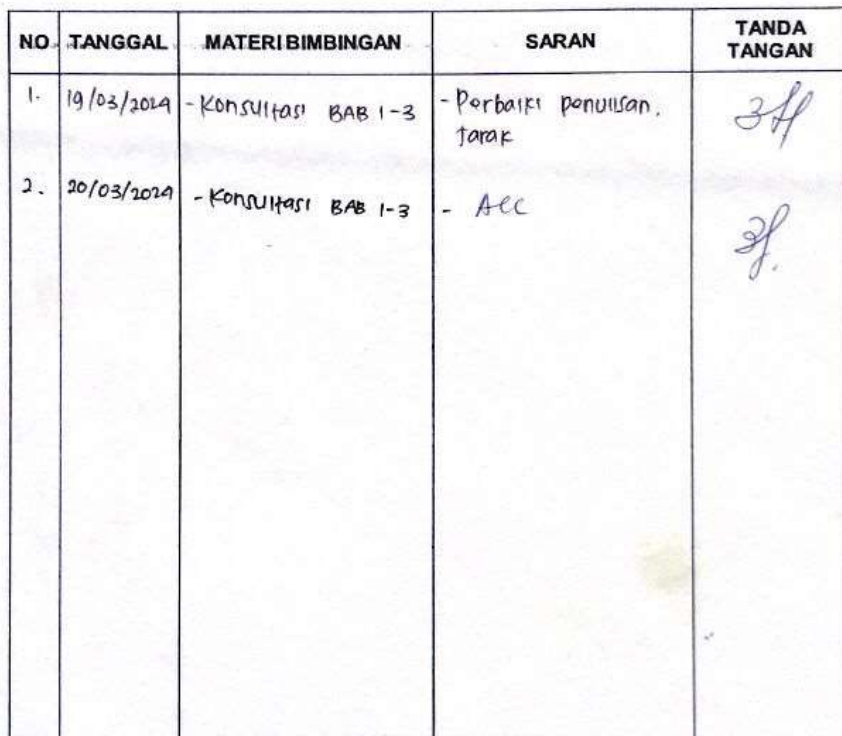 NO. TANGGAL MATERI BIMBINGAN SARAN TANDA TANGAN
1. 19/03/2024 - Konsultasi BAB 1-3 - Perbaiki penulisan,
Jarak
2. 20/03/2024 - Konsultasi BAB 1-3 - Acc